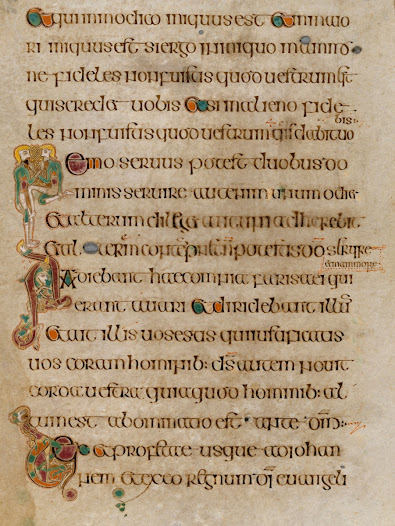 & qui inmodico iniquus est & inmaio
ri iniquus est si ergo in iniquo mammo
ne fideles non fuistis quod uestrum est
quis credet uobis & si in alieno fide
bis
les non fuistis quod uestrum quis dabit uo
Nemo seruus potest duobus do
minis seruire aut enim unum odie
& alterum diliget aut uni adherebit
& alterum contempnet non potestis dō seruire
& mammone
Audiebant haec omnia farisaei qui
erant auari & diridebant illum
& ait illis uos estis qui iustificatis
uos coram hominib: d̄s autem nouit
corda uestra quia quod hominib: al
tum est abominatio est ante d̄m:
& profetae usque ad iohan
nem & ex eo regnum d̄i euangeli